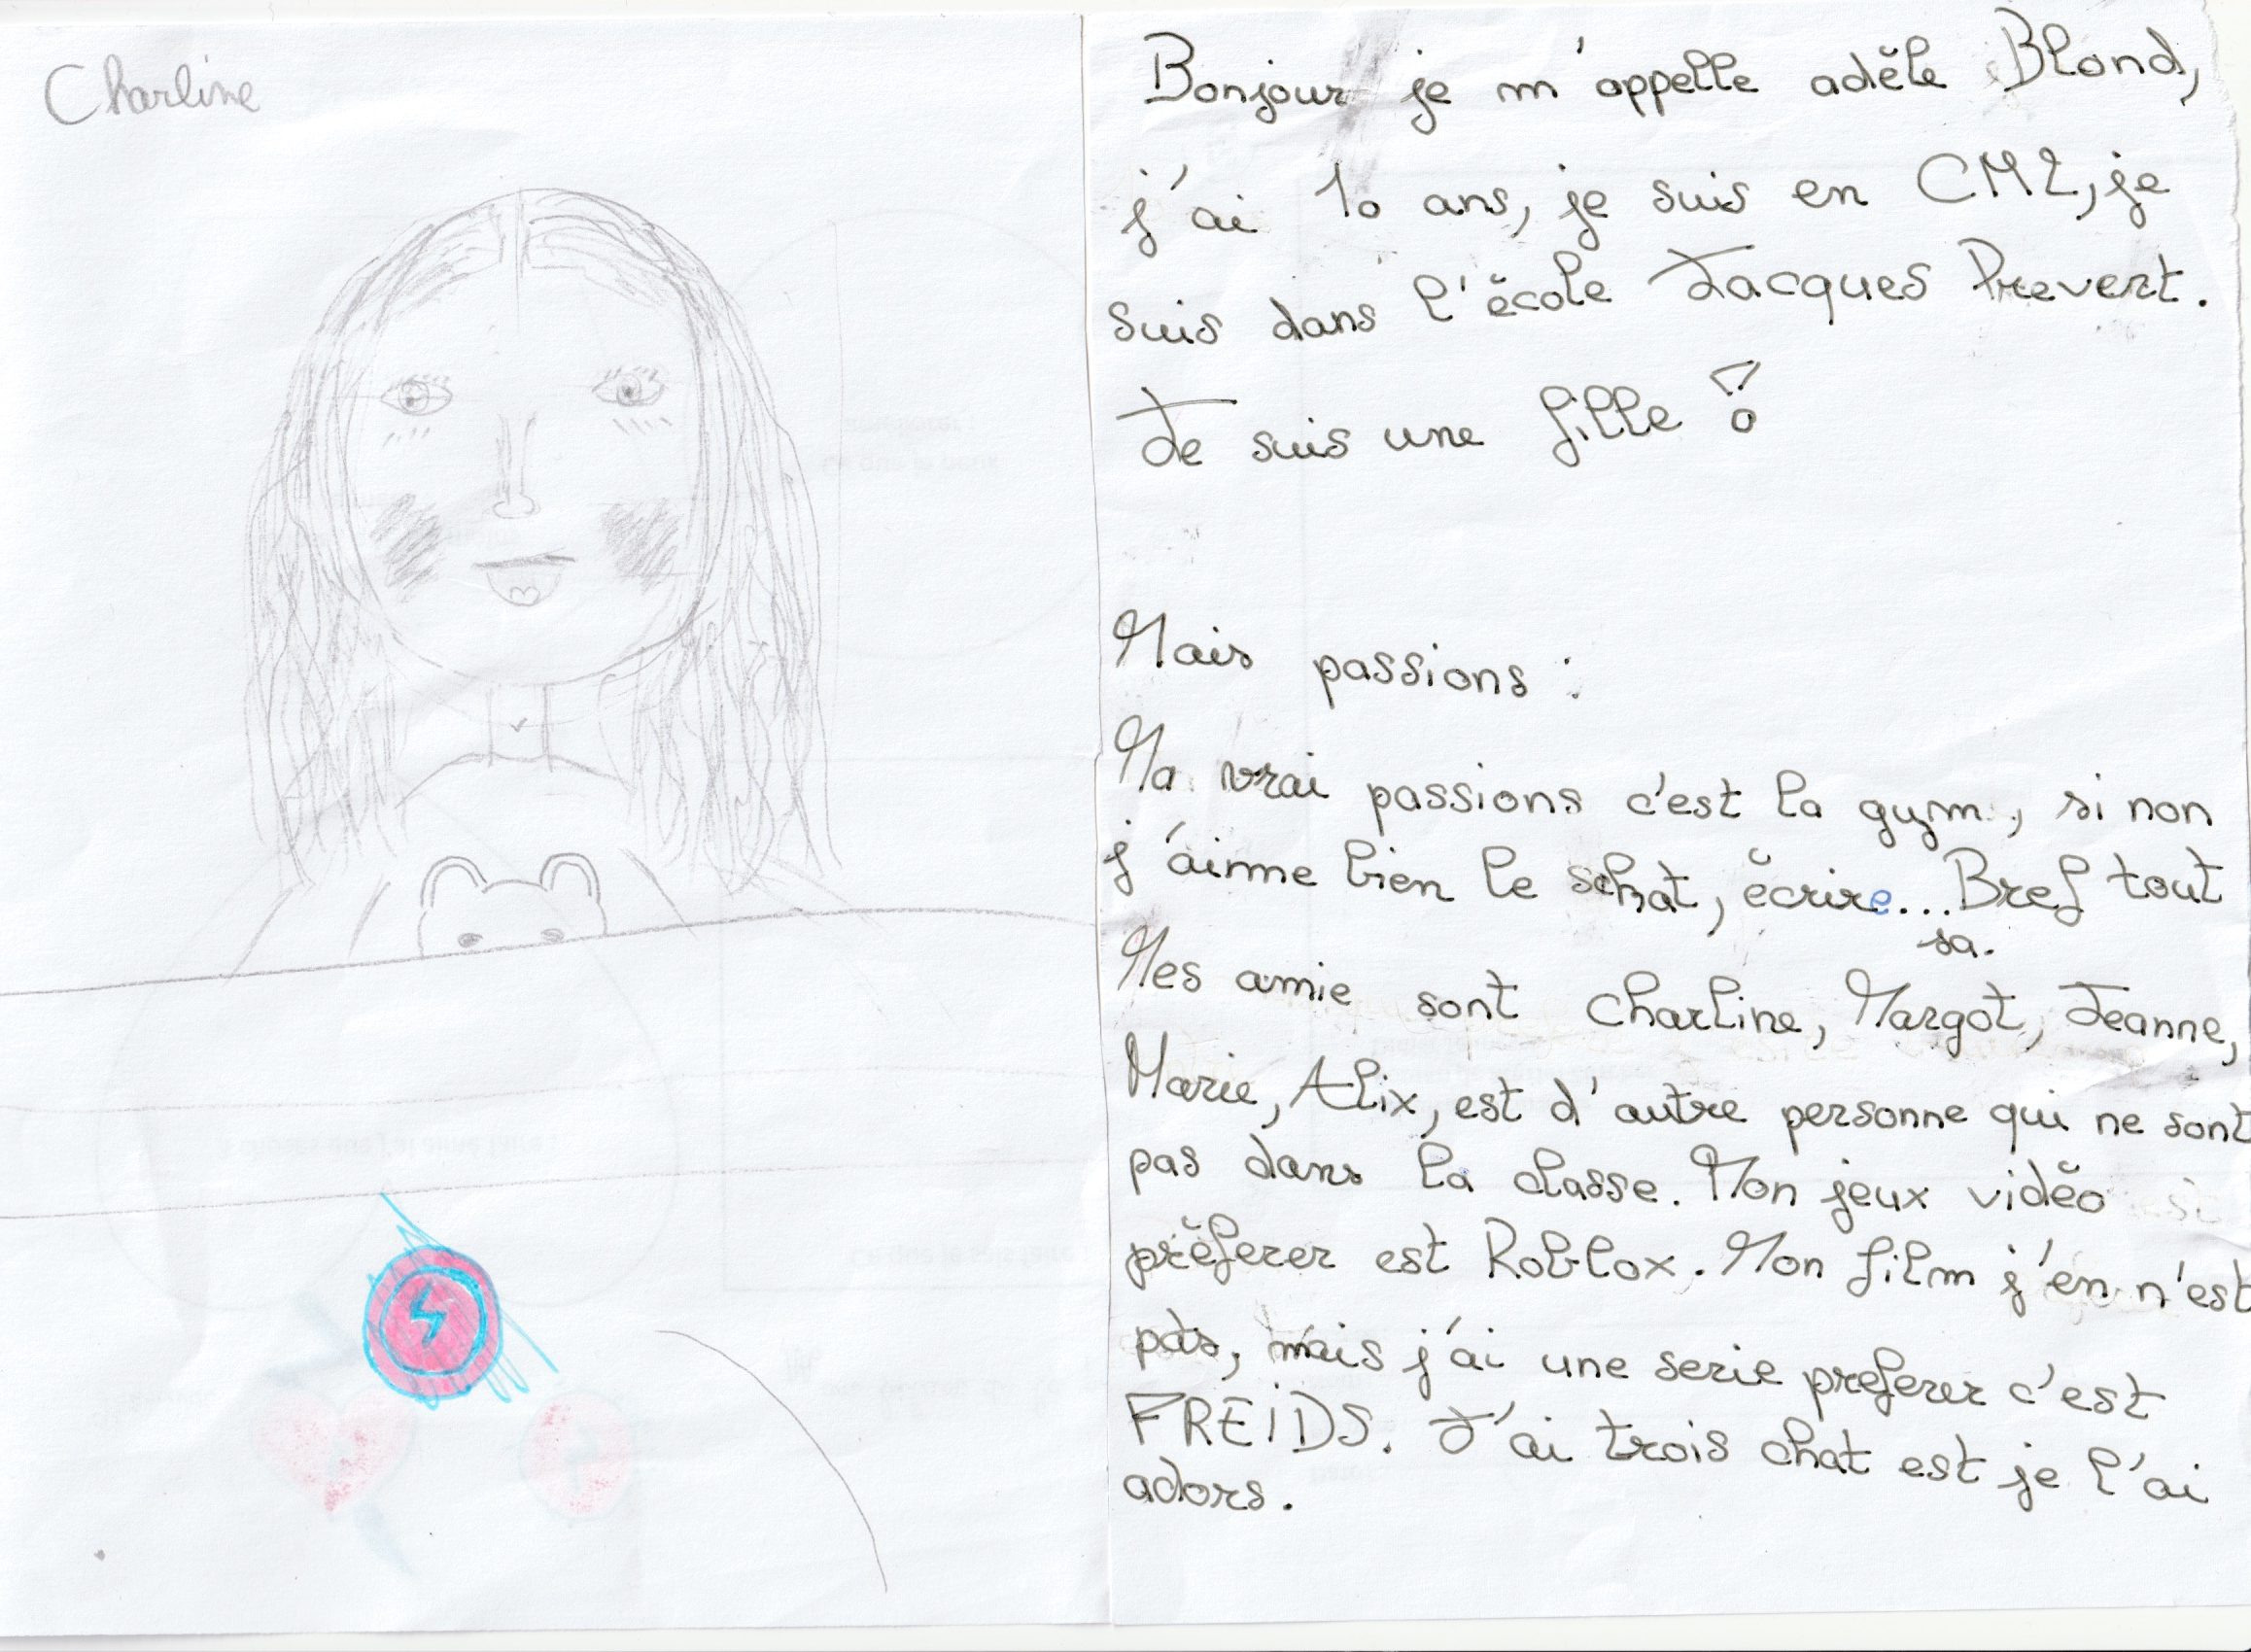 Charline
Bonjour je m'appelle adèle Blond,
j'ai 10 ans, je suis en CM2, je
suis dans l'école Jacques Prevert.
Je suis une fille !
Mais passions :
Ma vrai passions c'est la gym, si non
j'aime bien le schat, écrire... Bref tout
sa.
Mes amie sont Charline, Margot, Jeanne,
Marie, Alix, est d'autre personne qui ne sont
pas dans la classe. Mon jeux vidéo
préferer est Roblox. Mon film j'en n'est
pas, mais j'ai une serie preferer c'est
FREIDS. J'ai trois chat est je l'ai
adors.